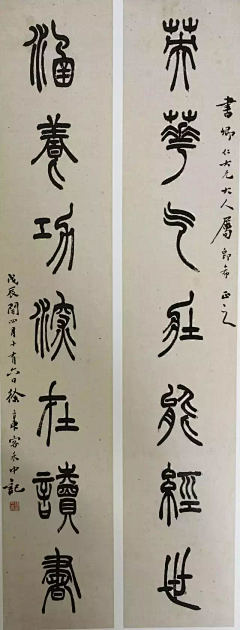 書卿仁大兄大人屬 即希 正之
英華气壯能經世
涵養功深在讀書
戊辰閏四月十有六日徐三庚客禾中記